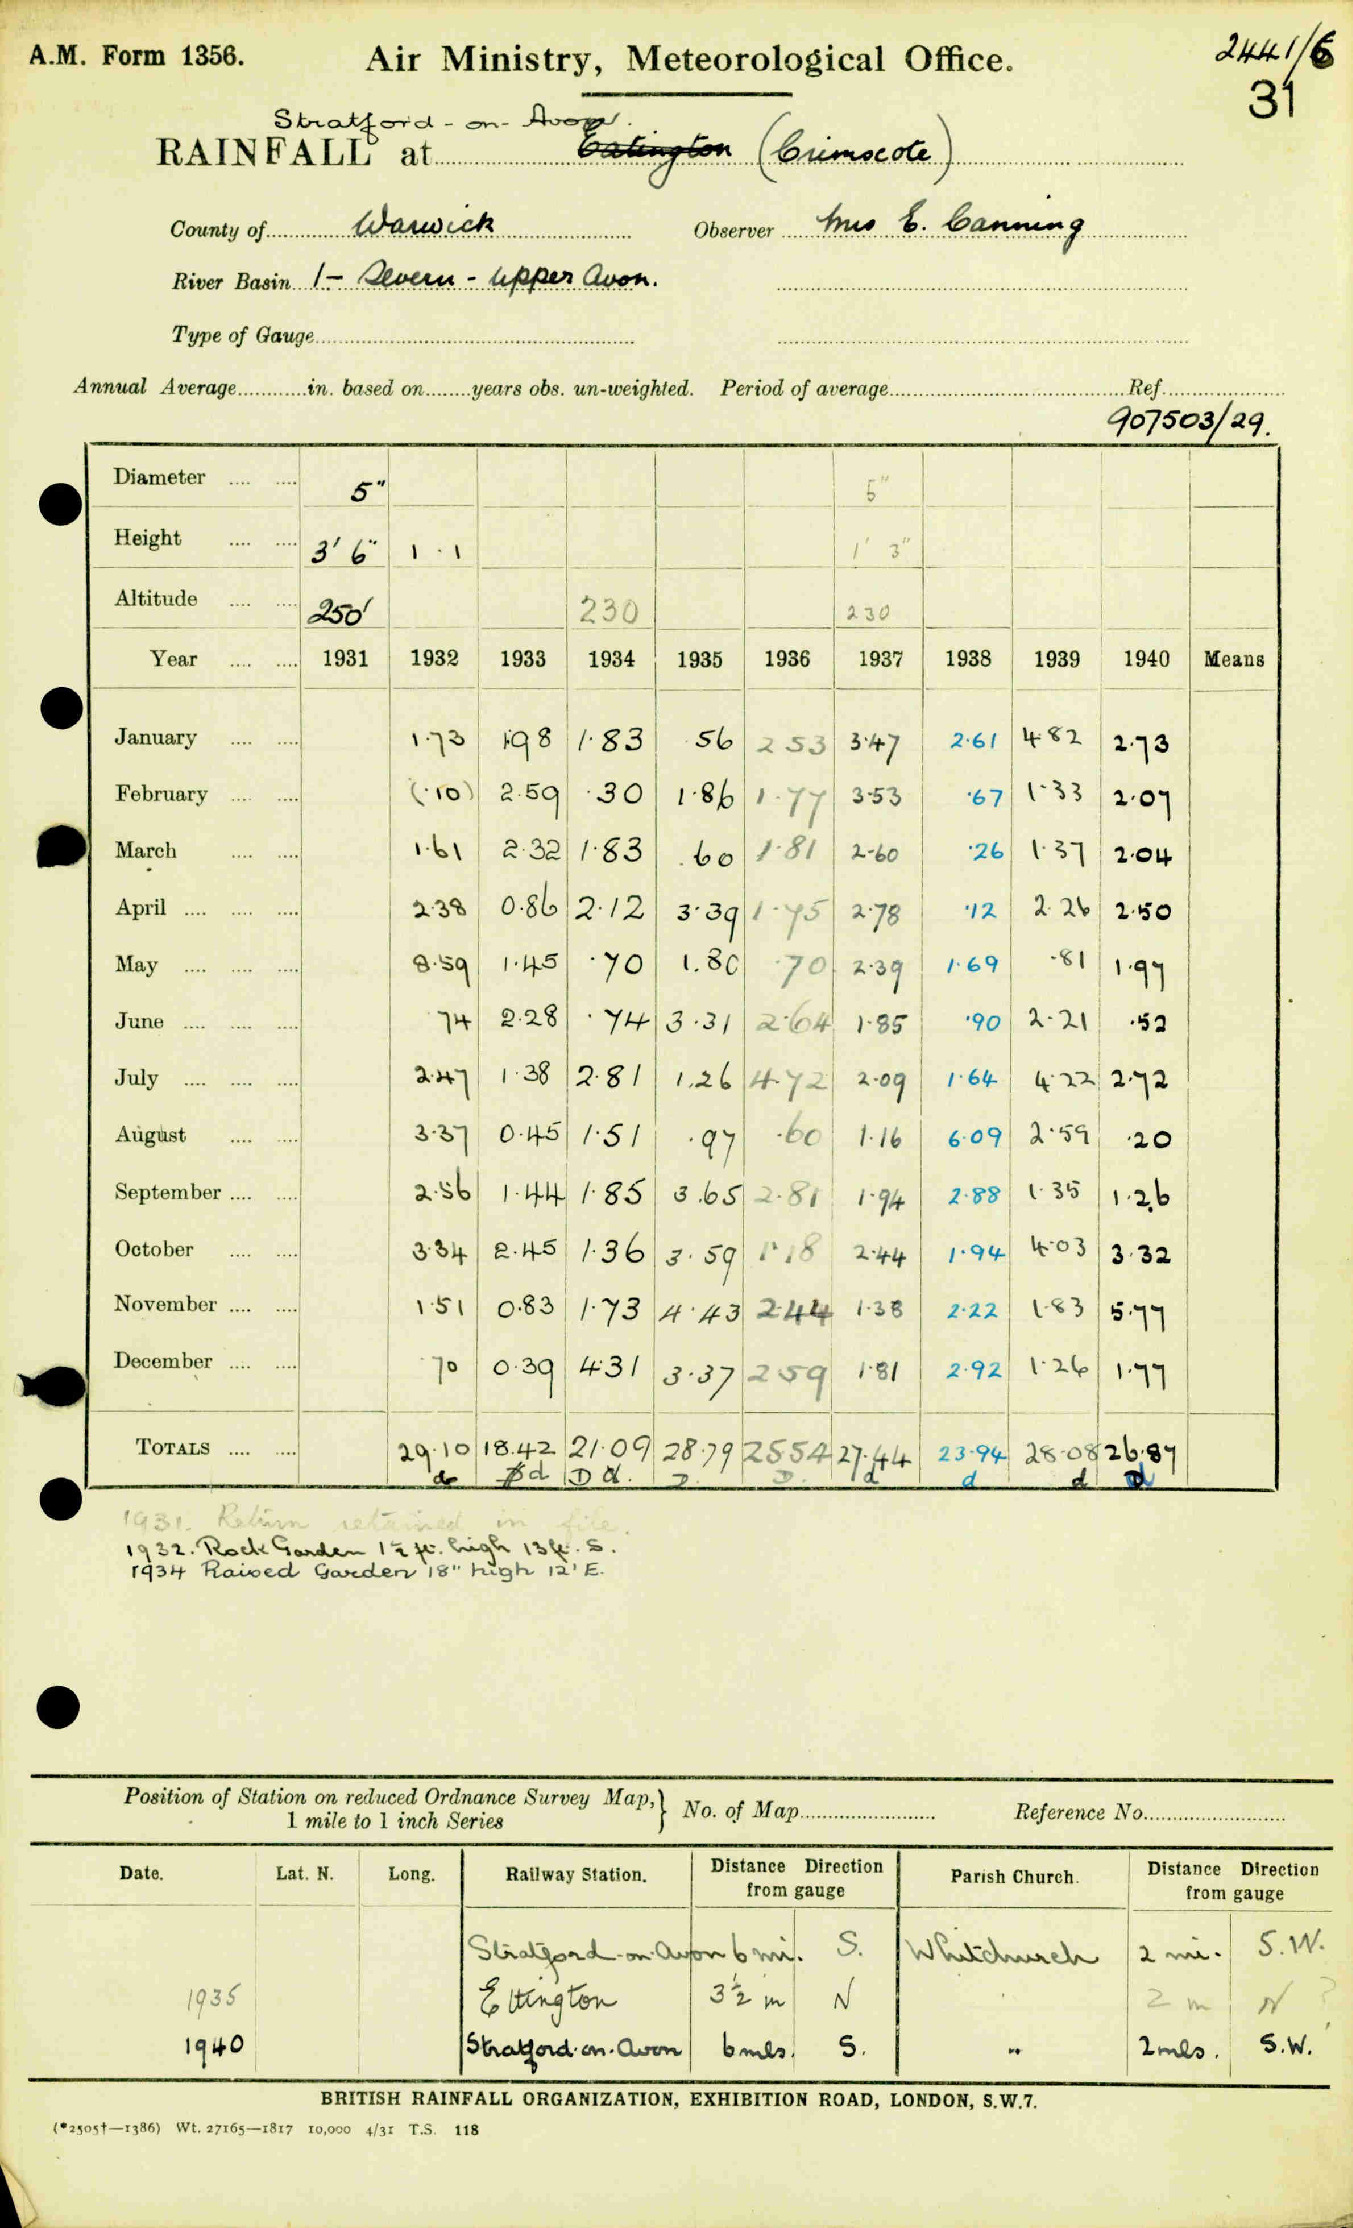 A.M. Form 1356.
Air Ministry, Meteorological Office.
2441/6
31
Stratford-on-Avon.
RAINFALL at Eatington (Crimscote)
County of Warwick Observer Mrs E. Canning
River Basin 1- Severn - Upper Avon.
Type of Gauge
Annual Average in. based on years obs. un-weighted. Period of average Ref.
907503/29.
Diameter 5" 5"
Height 3' 6" 1 . 1 1' 3"
Altitude 250' 230 230
Year 1931 1932 1933 1934 1935 1936 1937 1938 1939 1940 Means
January 1.73 1.98 1.83 .56 2.53 3.47 2.61 4.82 2.73
February (.10) 2.59 .30 1.86 1.77 3.53 .67 1.33 2.07
March 1.61 2.32 1.83 .60 1.81 2.60 .26 1.37 2.04
April 2.38 0.86 2.12 3.39 1.75 2.78 .12 2.26 2.50
May 8.59 1.45 .70 1.80 .70 2.39 1.69 .81 1.97
June 74 2.28 .74 3.31 2.64 1.85 .90 2.21 .52
July 2.47 1.38 2.81 1.26 4.72 2.09 1.64 4.22 2.72
August 3.37 0.45 1.51 .97 .60 1.16 6.09 2.59 .20
September 2.56 1.44 1.85 3.65 2.81 1.94 2.88 1.35 1.26
October 3.34 2.45 1.36 3.59 1.18 2.44 1.94 4.03 3.32
November 1.51 0.83 1.73 4.43 2.44 1.38 2.22 1.83 5.77
December 70 0.39 4.31 3.37 2.59 1.81 2.92 1.26 1.77
TOTALS 29.10 18.42 21.09 28.79 25.54 27.44 23.94 28.08 26.87
d d D d. D. D. d d d D
1931. Return retained in file.
1932. Rock Garden 1½ ft. high 13ft. S.
1934 Raised Garden 18" high 12' E.
Position of Station on reduced Ordnance Survey Map, } No. of Map Reference No.
1 mile to 1 inch Series
Date. Lat. N. Long. Railway Station. Distance Direction from gauge Parish Church. Distance Direction from gauge
Stratford-on-Avon 6 mi. S. Whitchurch 2 mi. S.W.
1935 Ettington 3½ m N 2 m N ?
1940 Stratford-on-Avon 6 mls. S. " 2 mls. S.W.
BRITISH RAINFALL ORGANIZATION, EXHIBITION ROAD, LONDON, S.W.7.
(*2505†—1386) Wt. 27165—1817 10,000 4/31 T.S. 118